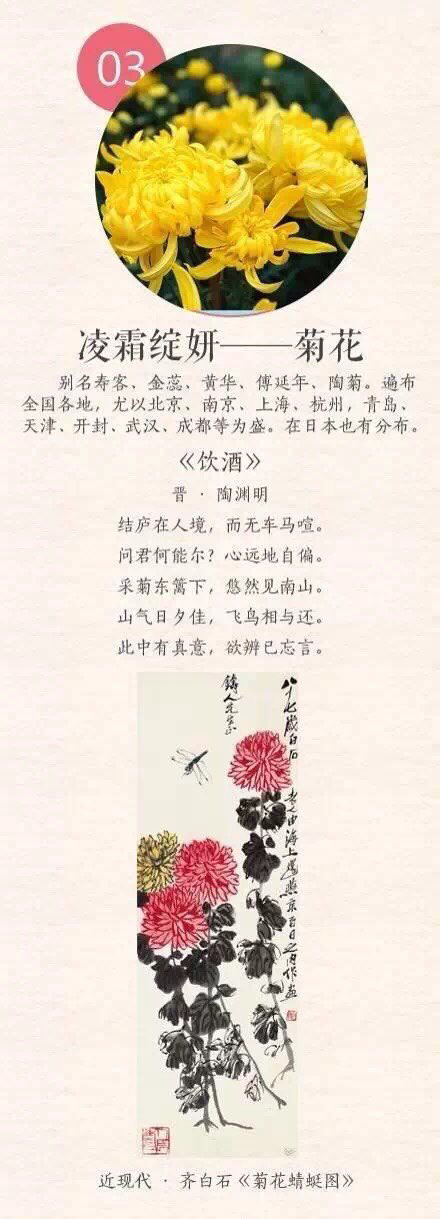 03
凌霜绽妍——菊花
别名寿客、金蕊、黄华、傅延年、陶菊。遍布
全国各地，尤以北京、南京、上海、杭州，青岛、
天津、开封、武汉、成都等为盛。在日本也有分布。
《饮酒》
晋 · 陶渊明
结庐在人境，而无车马喧。
问君何能尔？心远地自偏。
采菊东篱下，悠然见南山。
山气日夕佳，飞鸟相与还。
此中有真意，欲辨已忘言。
八十七岁白石老人由海上还燕京百日之内作画
铸人先生正
近现代 · 齐白石《菊花蜻蜓图》